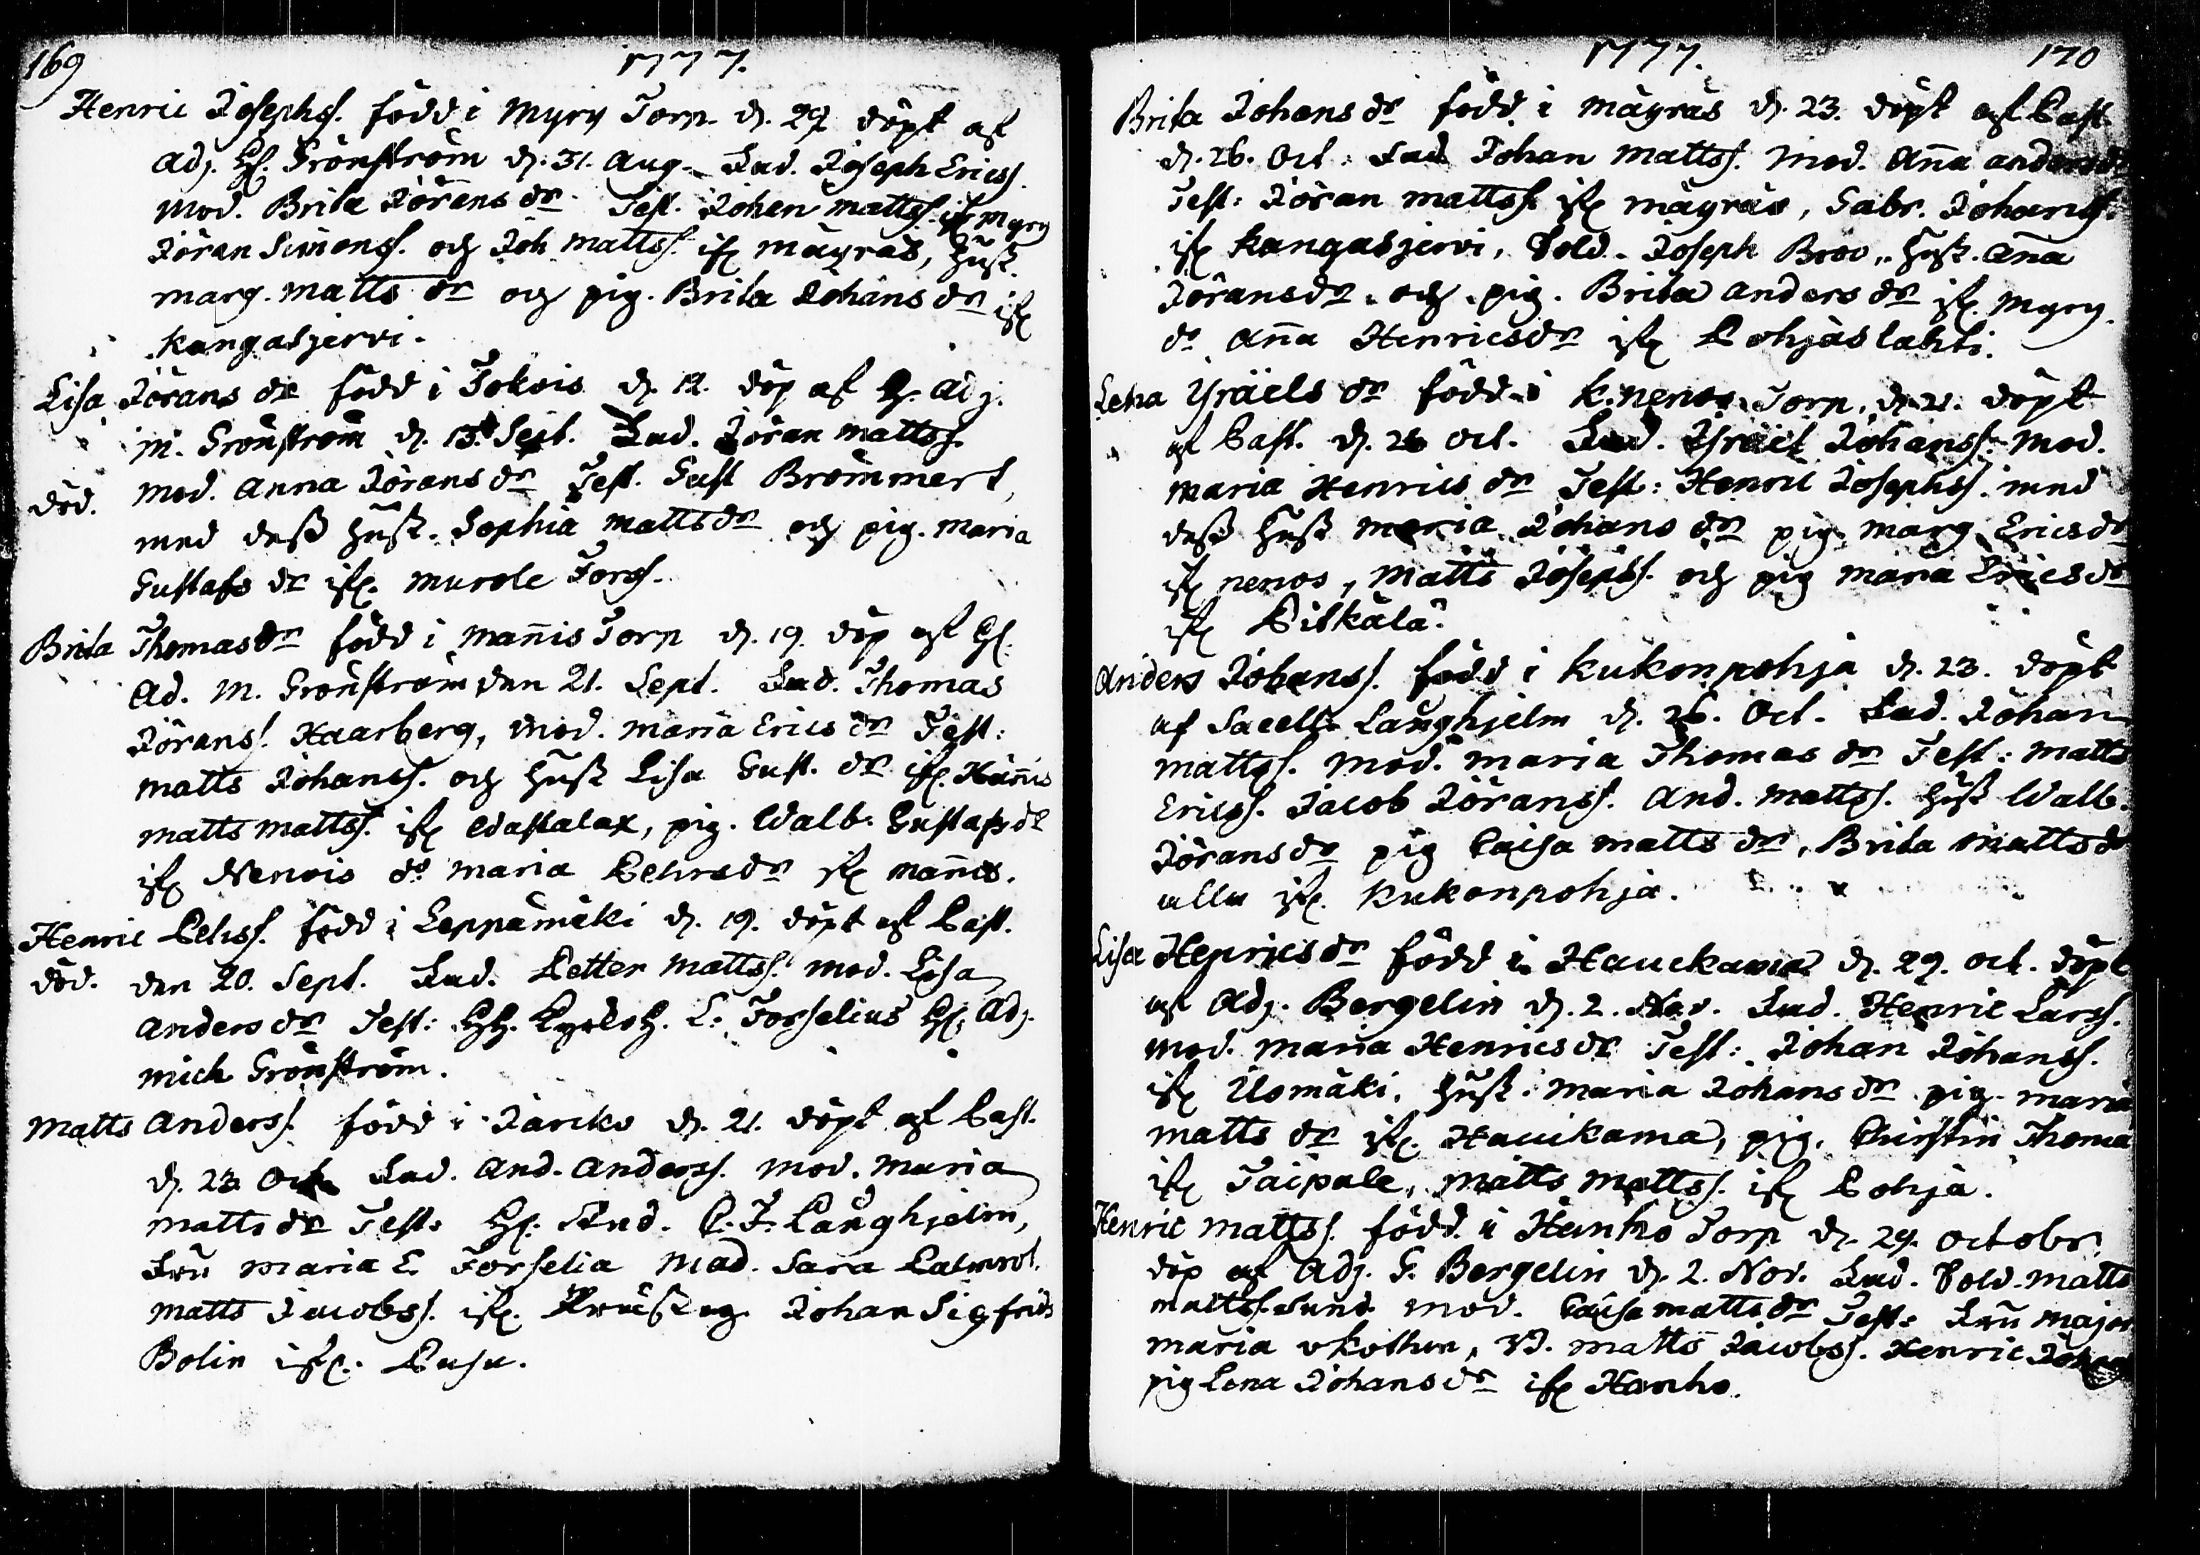 169
1777.
Henric Josephss. född i Myry Torp d. 29 döpt af
Adj. H. Grönström d. 31. Aug. Fad. Joseph Ericss.
Mod. Brita Jörensdr Test. Johan Mattss. ifr. Myry
Jöran Simonss. och Joh Mattss. ifr. Mägräs, Hust.
Marg. Matts dr och pig. Brita Johans dr ifr
Kangasjervi.
Lisa Jörans dr född i Tokois d. 12. döp af H. Adj.
M. Grönström d. Sept. Fad. Jöran Mattss.
död. Mod. Anna Jörans dr Test. Gust Brömmert,
med dess Hust. Sophia Matts dr och pig. Maria
Gustafs dr ifr. Murole Forss.
Brita Thomas dr född i Mannis Torp d. 19. döp af H.
Ad. M. Grönström den 21. Sept. Fad. Thomas
Jörans. Haarberg, Mod. Maria Erics dr Test:
Matts Johanss. och Hust Lisa Gust. dr ifr.
Matts Mattss. ifr Wastalax, pig. Walb. Gustafs dr
ifr Nenois do Maria Petersdr ifr Mannis.
Henric Petrss. född i Leppämäki d. 19. döpt af Past.
död. den 20. Sept. Fad. Petter Mattss. Mod. Lisa
Anders dr Test: E. Forselius H. Adj.
Mich Grönström.
Matts Anderss. född i Jäncko d. 21. döpt af Past.
d. 23 Oct. Fad. And. Anderss. Mod. Maria
Matts dr Test: H. Stud. C. F. Laughjelm,
Fru Maria E. Forselia Mad. Sara Palmrot.
Matts Jacobss. ifr. Johan Sigfrids
Bolin ifr. Pusu.
1777.
170
Brita Johans dr född i Mägräs d. 23. döpt af Past.
d. 26. Oct. Fad Johan Mattss. Mod. Anna Anders dr
Test: Jöran Mattss. ifr Mägräs, Gabr. Johanss.
ifr Kangasjervi, Sold. Joseph Broo, Hust. Anna
Jöransdr och pig. Brita Anders dr ifr. Myry.
do Anna Henricsdr ifr Pohjaslahti.
Lena Israels dr född i K.nenos Torp, d. 21. döpt
af Past. d. 26 Oct. Fad. Israel Johanss. Mod.
Maria Henrics dr Test: Henric Josephss. med
dess Hust Maria Johans dr pig. Marg. Erics dr
ifr nenos, Matts Josephss. och pig Maria Erics dr
ifr Pitkälä.
Anders Johanss. född i Kukonpohja d. 23. döpt
af Sacell. Laughjelm d. 26. Oct. Fad. Johan
Mattss. Mod. Maria Thomas dr Test: Matts
Ericss. Jacob Jöranss. And. Mattss. Hust Walb.
Jörans dr pig Caisa Matts dr, Brita Matts dr
alla ifr. Kukonpohja.
Lisa Henrics dr född i Hauckama d. 29. Oct. döpt
af Adj. Bergelin d. 2. Nov. Fad. Henric Larss.
Mod. Maria Henrics dr Test: Johan Johanss.
ifr Usmäki, Hust. Maria Johans dr pig. Maria
Matts dr ifr. Hauikama, pig. Christin Thoma
ifr Taipale, Matts Mattss. ifr Pohja.
Henric Mattss. född i Hanho Torp d. 29. Octobr.
döp af Adj. G. Bergelin d. 2. Nov. Fad. Sold. Matts
Mattss. Sund Mod. Caisa Matts dr Test: Fru Major
Maria v Kothen, Matts Jacobss. Henric
pig Lena Johans dr ifr Hanho.